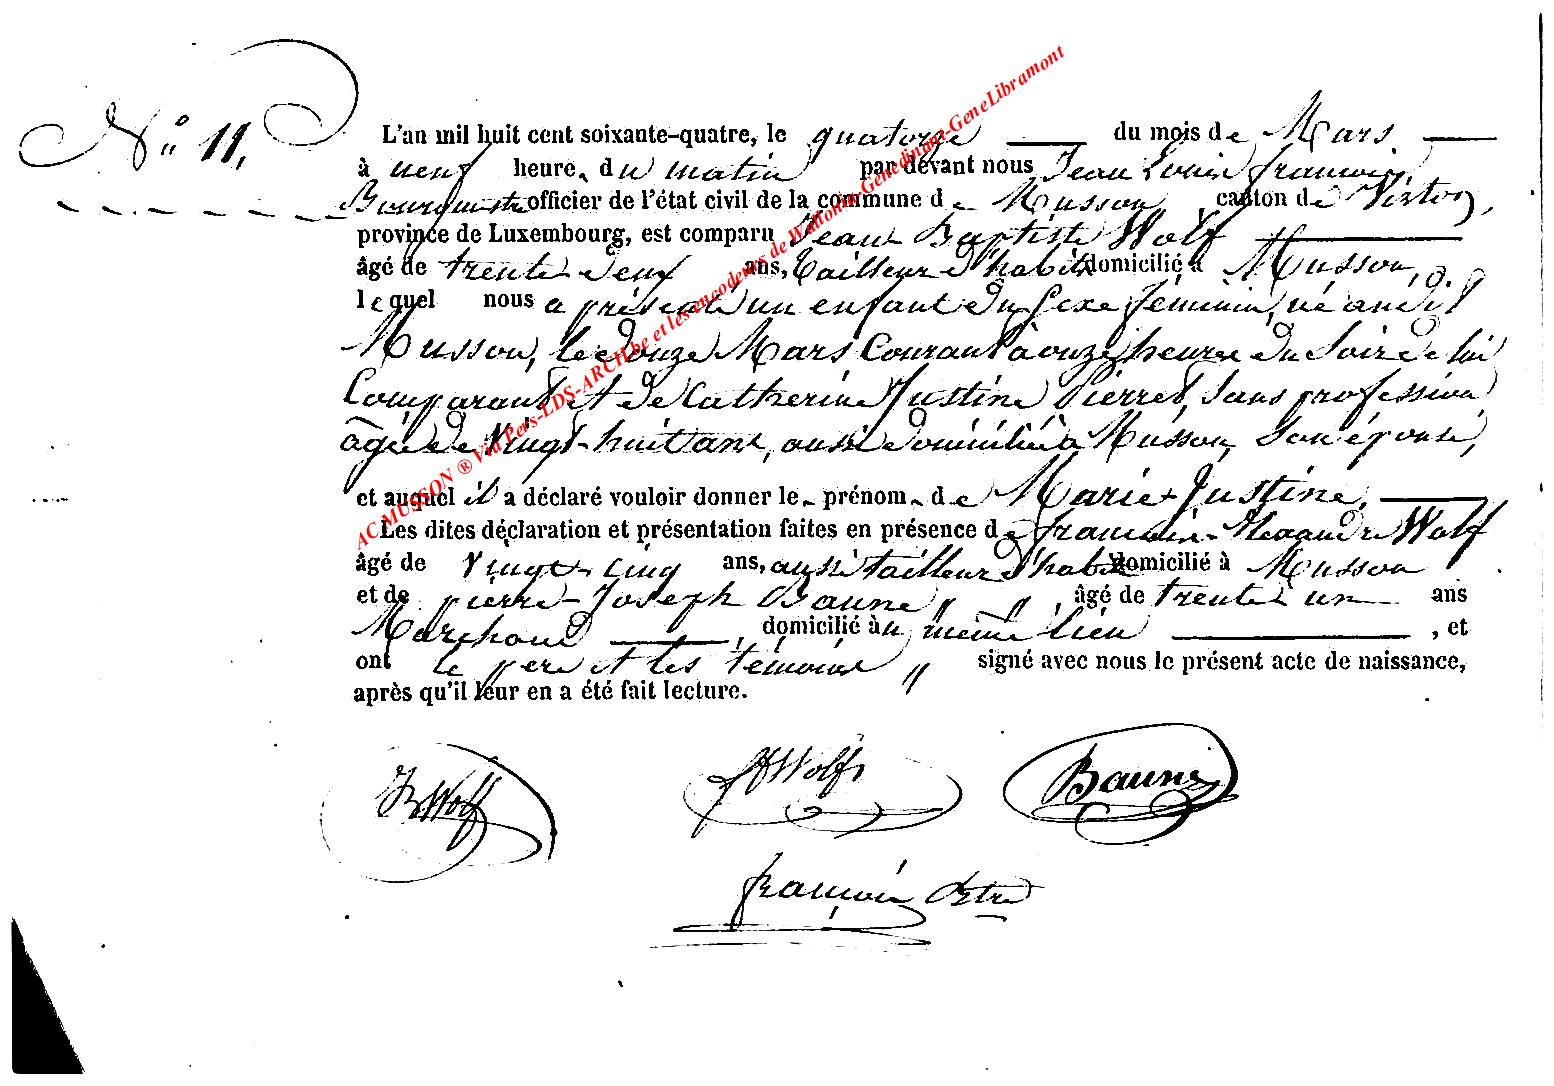 N° 11,
L'an mil huit cent soixante-quatre, le quatorze du mois de Mars
à neuf heures du matin par devant nous Jean Louis françois
officier de l'état civil de la commune de Musson canton de Virton,
province de Luxembourg, est comparu Jean Baptiste Wolf
âgé de trente deux ans, tailleur d'habits domicilié à Musson,
lequel nous a présenté un enfant du sexe féminin, né audit
Musson, le douze Mars Courant à onze heures du soir de lui
Comparant et de Catherine Justine Pierret, sans profession
âgée de vingt-huit ans, aussi domiciliée à Musson, son épouse,
et auquel il a déclaré vouloir donner les prénoms de Marie-Justine,
Les dites déclaration et présentation faites en présence de françois-Alexandre Wolf
âgé de vingt-cinq ans, aussi tailleur d'habits domicilié à Musson
et de pierre-Joseph Baune âgé de trente un ans
Marchand, domicilié au même lieu, et
ont le père et les témoins signé avec nous le présent acte de naissance,
après qu'il leur en a été fait lecture.
JBWolf FAWolf Baune
françois
AC MUSSON ® Via Pers-LDS-ARCH.be et les encodeurs de Wallonia-Genedinant-GeneLibramont